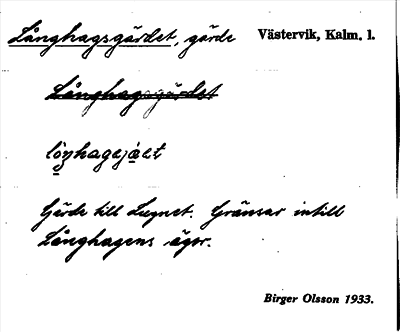 Långhagsgärdet, gärde Västervik, Kalm. l.
Långhagsgärdet
Gärde till Lugnet. Gränsar intill
Långhagens ägor.
Birger Olsson 1933.